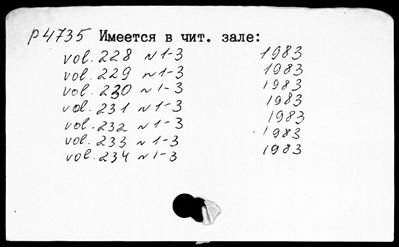 p4735 Имеется в чит. зале:
vol. 228 N 1-3 1983
vol. 229 N 1-3 1983
vol. 230 N 1-3 1983
vol. 231 N 1-3 1983
vol. 232 N 1-3 1983
vol. 233 N 1-3 1983
vol. 234 N 1-3 1983